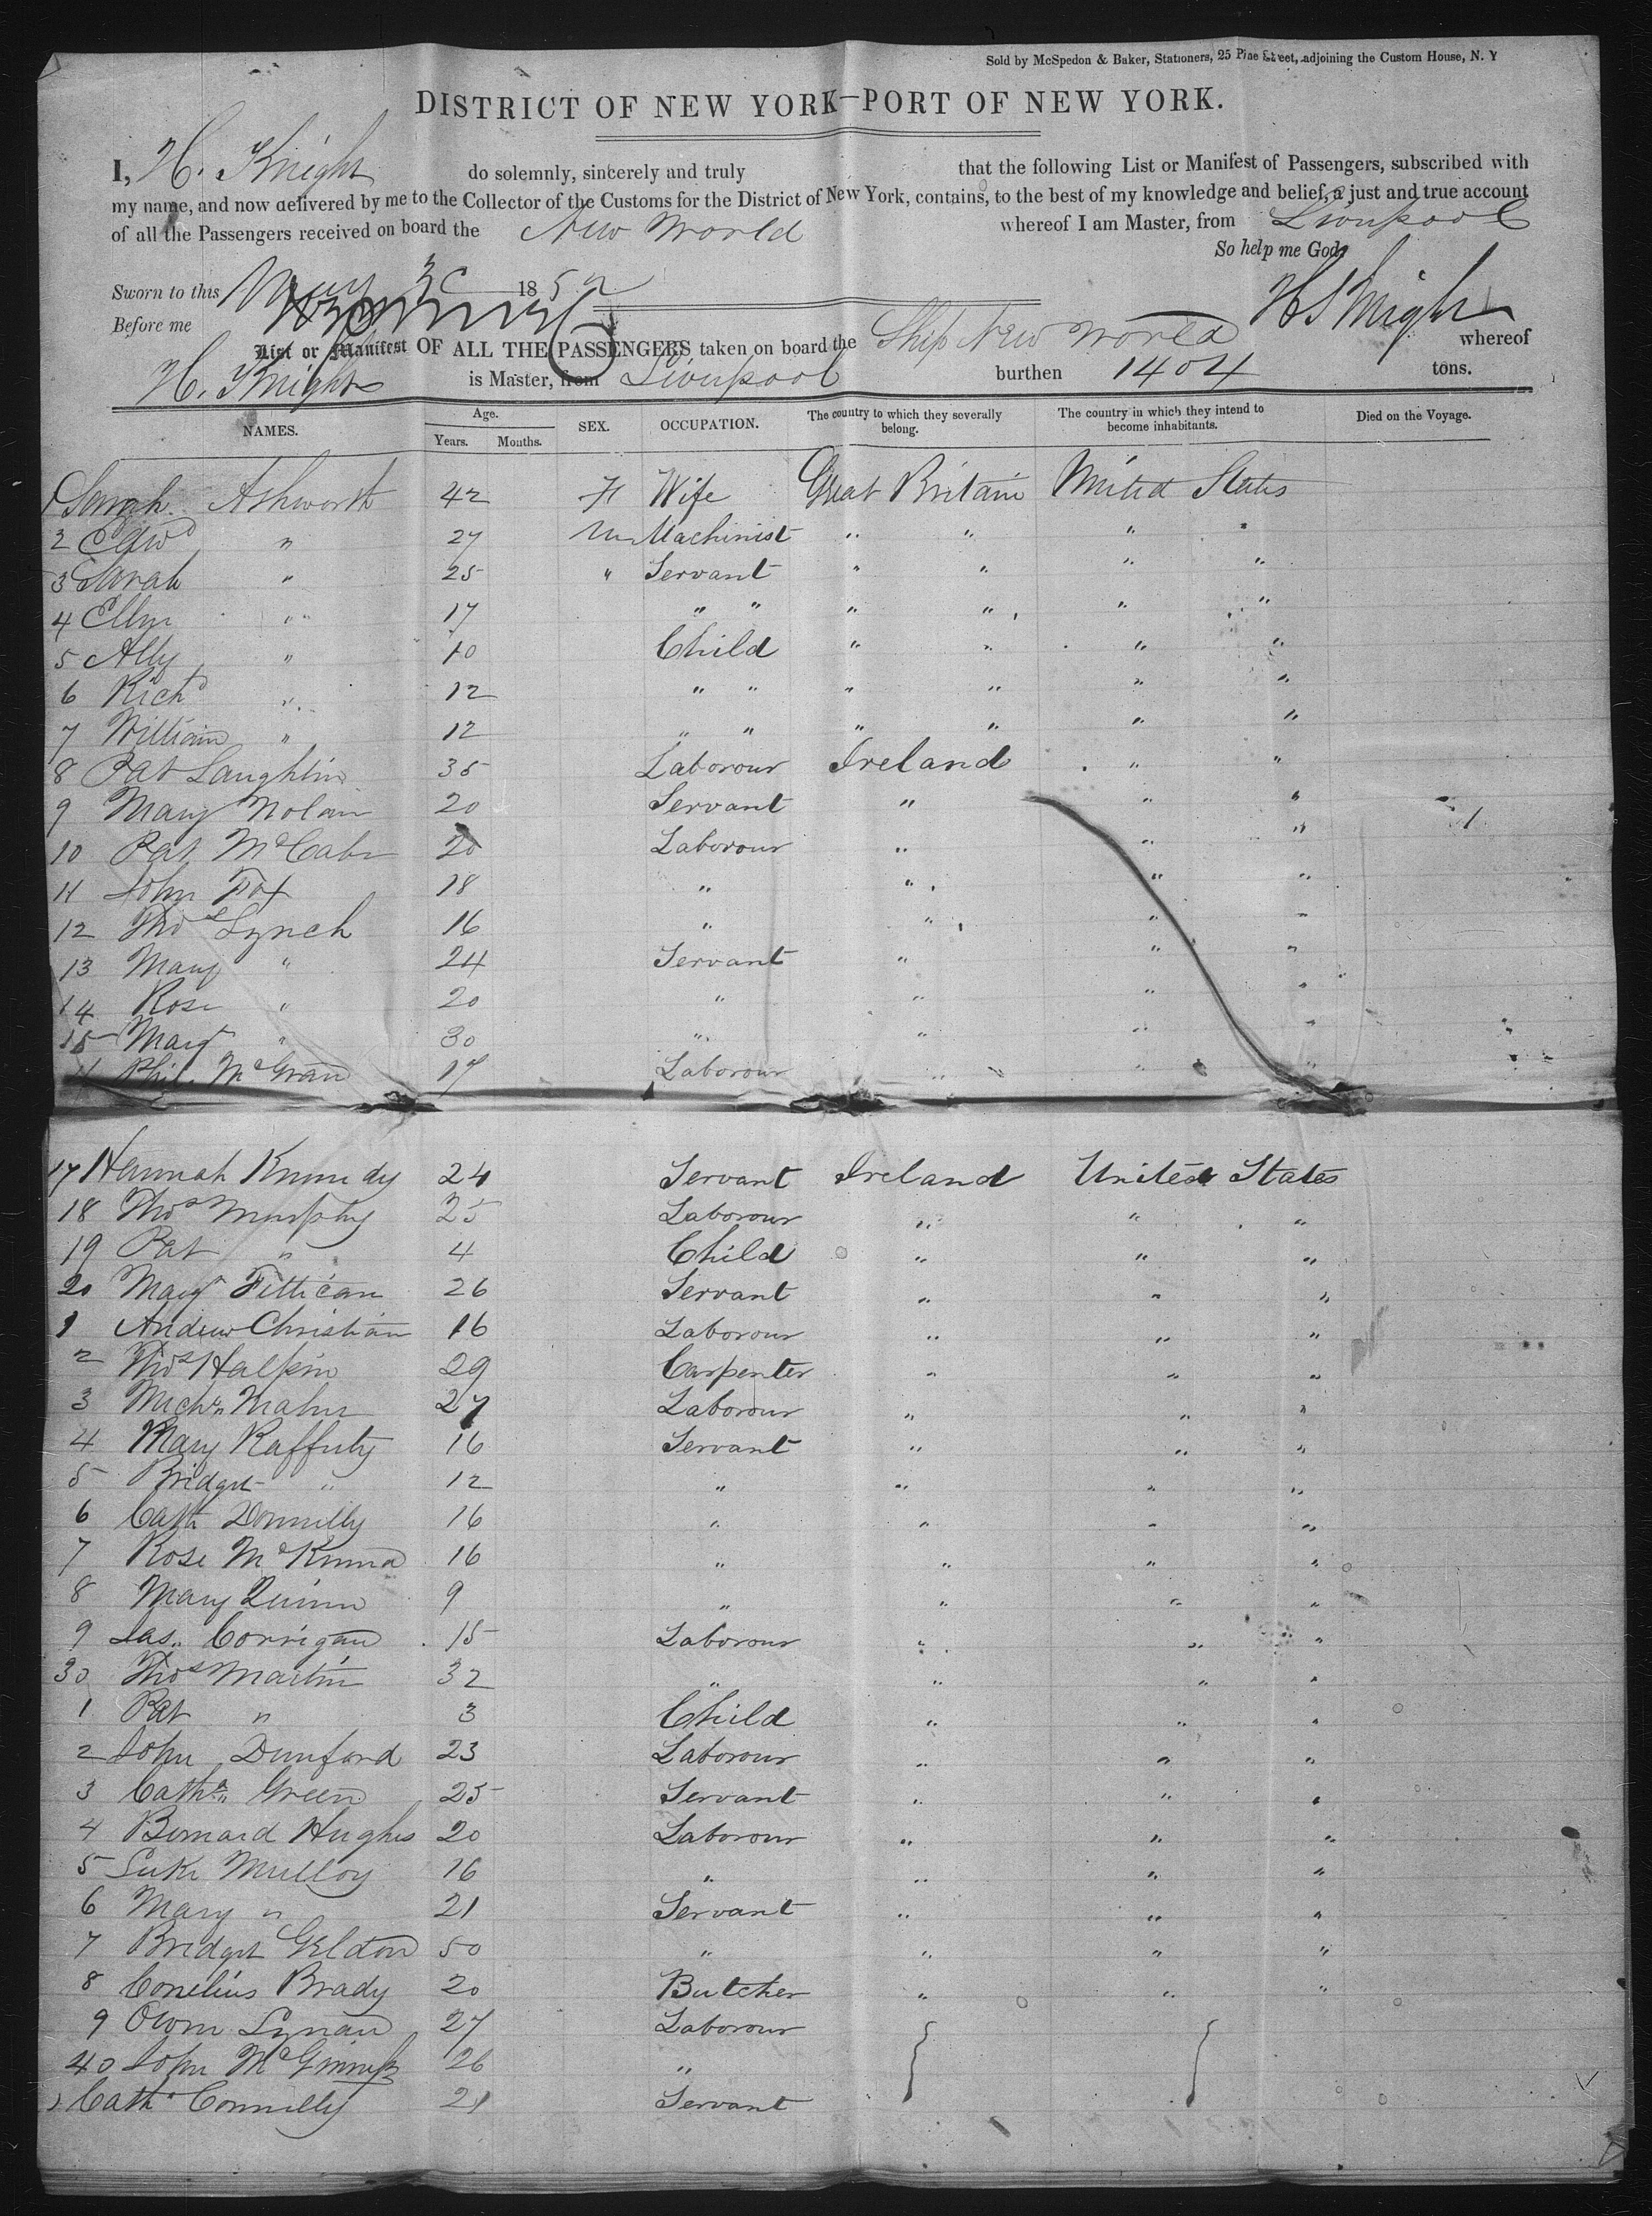 Sold by McSpedon & Baker, Stationers, 25 Pine Street, adjoining the Custom House, N. Y
DISTRICT OF NEW YORK—PORT OF NEW YORK.
I, H. Knight do solemnly, sincerely and truly that the following List or Manifest of Passengers, subscribed with
my name, and now delivered by me to the Collector of the Customs for the District of New York, contains, to the best of my knowledge and belief, a just and true account
of all the Passengers received on board the New World whereof I am Master, from Liverpool
So help me God.
Sworn to this May 30 1852
Before me H Knight
List or Manifest OF ALL THE PASSENGERS taken on board the Ship New World whereof
H. Knight is Master, from Liverpool burthen 1404 tons.
NAMES. Age. Years. Months. SEX. OCCUPATION. The country to which they severally belong. The country in which they intend to become inhabitants. Died on the Voyage.
1 Sarah Ashworth 42 F Wife Great Britain United States
2 Edwd " 27 M Machinist " " " "
3 Sarah " 25 " Servant " " " "
4 Ellen " 17 " " " " " "
5 Ally " 10 Child " " " "
6 Richd " 12 " " " " " "
7 William " 12 " " " " " "
8 Pat Laughlin 35 Laborour Ireland " "
9 Mary Nolan 20 Servant " " "
10 Pat McCabe 20 Laborour " " " 1
11 John Fox 18 " " " "
12 Thos Lynch 16 " " " "
13 Mary " 24 Servant " " "
14 Rose " 20 " " " "
15 Margt " 30 " " " "
Phil. McGran 17 Laborour " " "
17 Hannah Kennedy 24 Servant Ireland United States
18 Thos Murphy 25 Laborour " " "
19 Pat " 4 Child " " "
20 Margt 26 Servant " " "
1 Andrew Christian 16 Laborour " " "
2 Thos Halpin 29 Carpenter " " "
3 Michl Maher 27 Laborour " " "
4 Mary Rafferty 16 Servant " " "
5 Bridget " 12 " " " "
6 Cath Donnelly 16 " " " "
7 Rose McKenna 16 " " " "
8 Mary Quinn 9 " " " "
9 Jas. Corrigan 15 Laborour " " "
30 Thos Martin 32 " " " "
1 Pat " 3 Child " " "
2 John Dunford 23 Laborour " " "
3 Cathe Green 25 Servant " " "
4 Bernard Hughes 20 Laborour " " "
5 Luke Mulloy 16 " " " "
6 Mary " 21 Servant " " "
7 Bridget Geldon 50 " " " "
8 Conelius Brady 20 Butcher " " "
9 Owen Lynan 27 Laborour
40 John McGinness 26 "
1 Cath Connelly 21 Servant